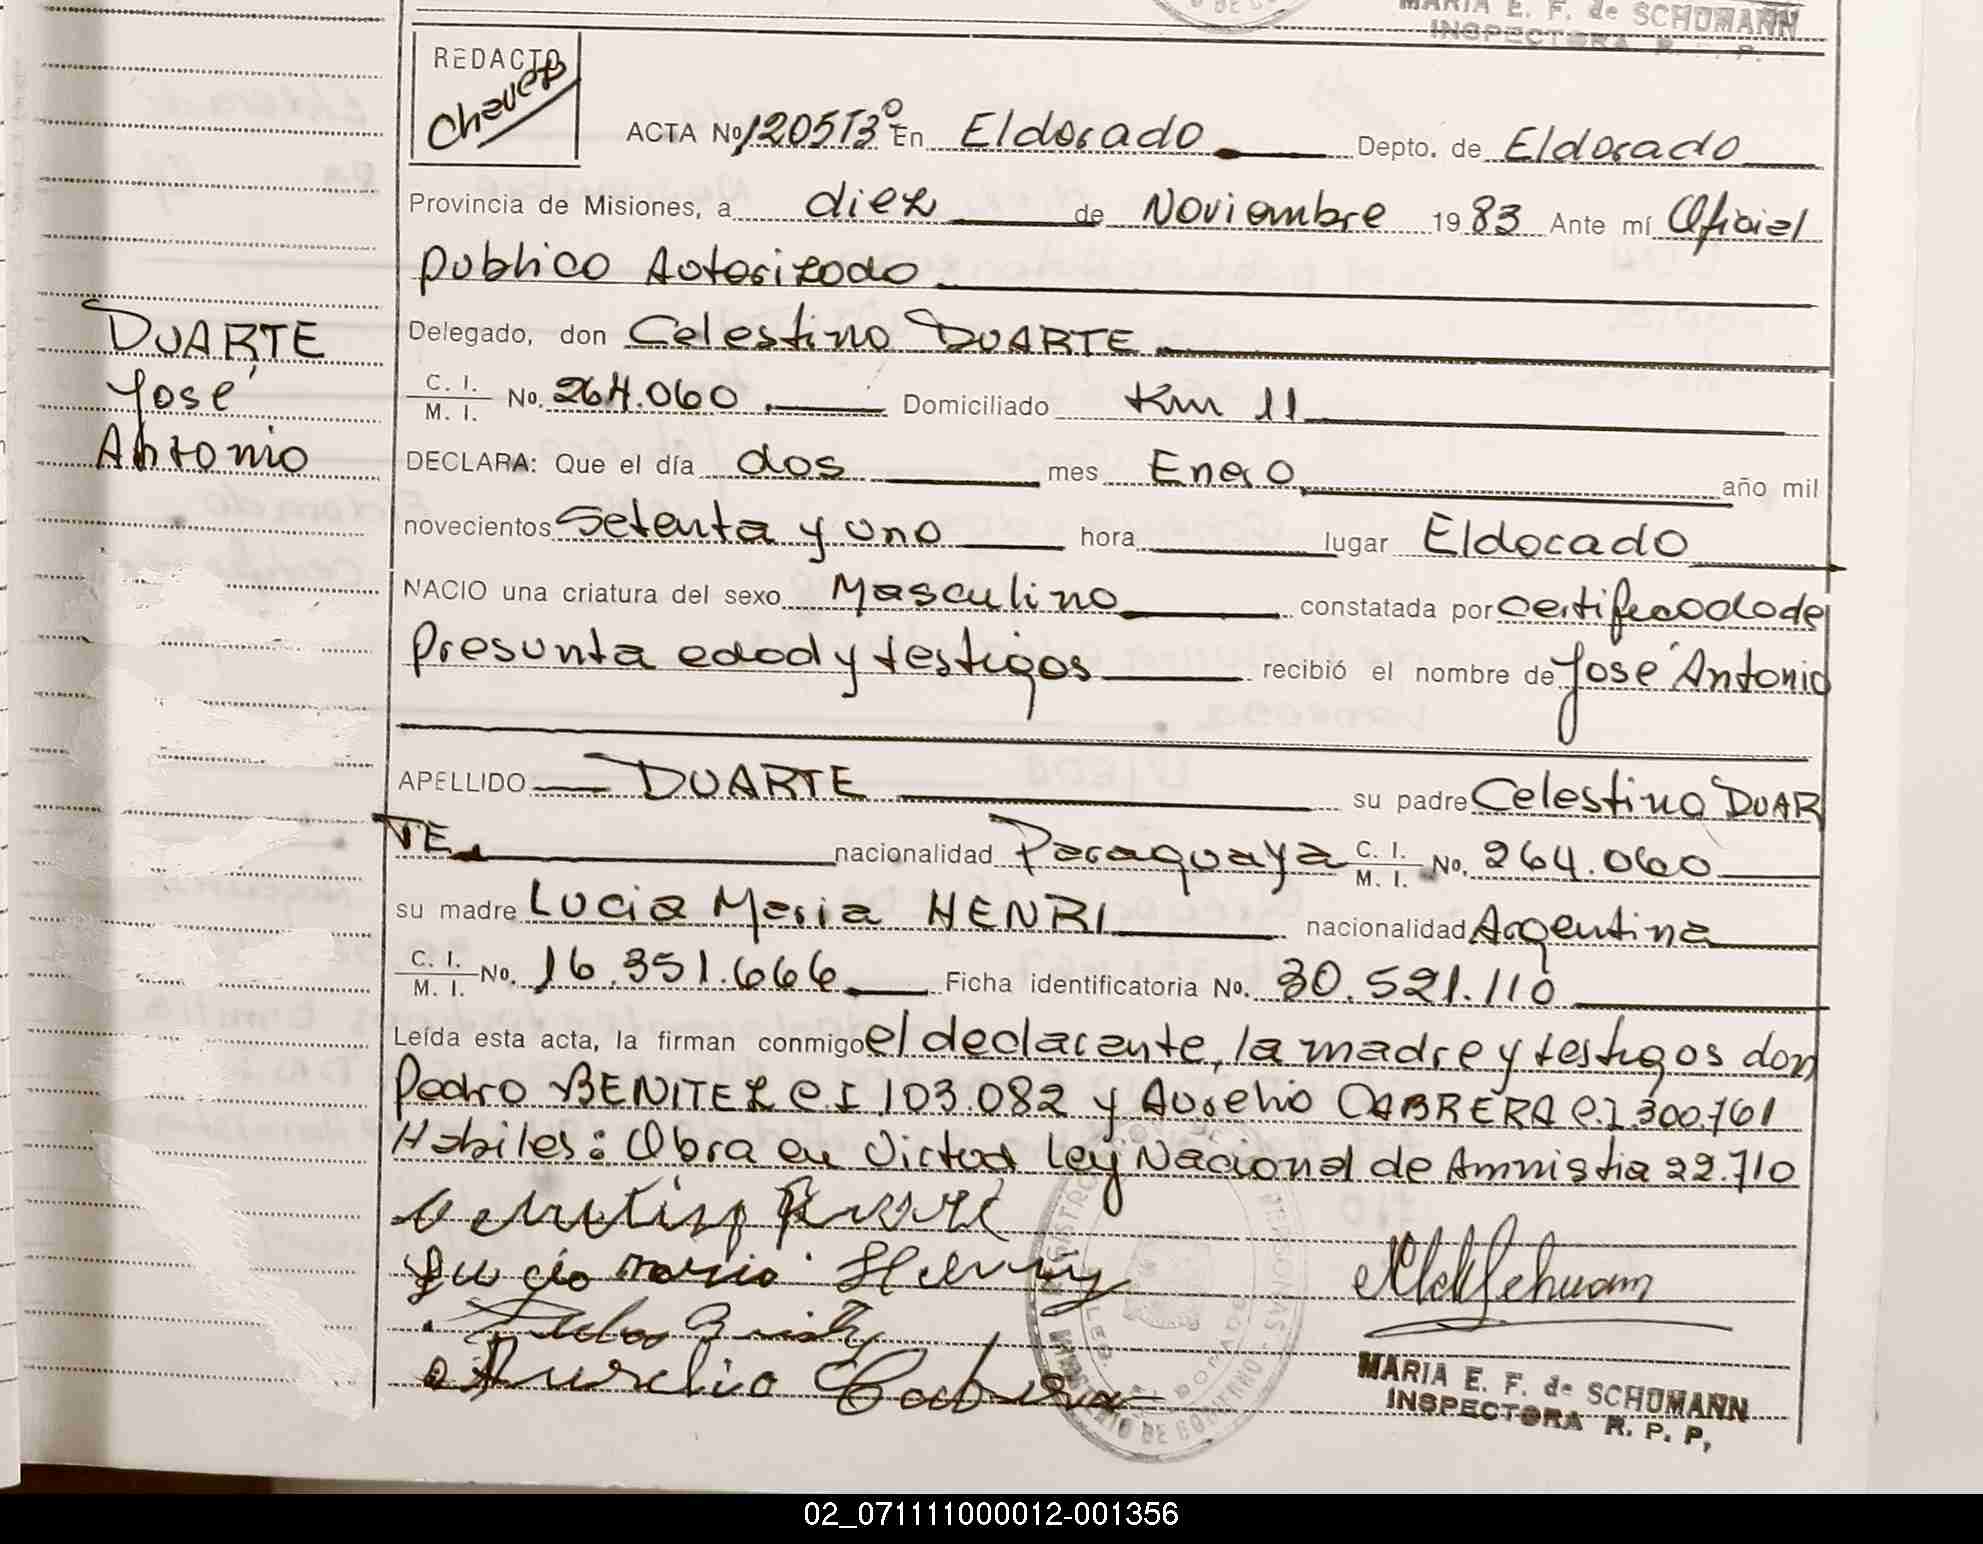 MARIA E. F. de SCHUMANN
INSPECTORA R. P. P.
REDACTO
Chavez
ACTA No 1205T3º En Eldorado Depto. de Eldorado
Provincia de Misiones, a diez de Noviembre 1983 Ante mí Oficial
publico Autorizado
DUARTE
José
Antonio
Delegado, don Celestino DUARTE
C. I. / M. I. No. 264.060 Domiciliado Km 11
DECLARA: Que el día dos mes Enero año mil
novecientos Setenta y uno hora lugar Eldorado
NACIO una criatura del sexo Masculino constatada por certificado de
presunta edad y testigos recibió el nombre de José Antonio
APELLIDO DUARTE su padre Celestino DUAR
TE nacionalidad Paraguaya C. I. / M. I. No. 264.060
su madre Lucia Maria HENRI nacionalidad Argentina
C. I. / M. I. No. 16.351.666 Ficha identificatoria No. 30.521.110
Leída esta acta, la firman conmigo el declarante, la madre y testigos don
Pedro BENITEZ C.I 103.082 y Aurelio CABRERA C.I.300.761
Habiles: Obra en Victud Ley Nacional de Amnistia 22.710
Lucia maria Henry
Aurelio Cabrera
MARIA E. F. de SCHUMANN
INSPECTORA R. P. P,
02_071111000012-001356